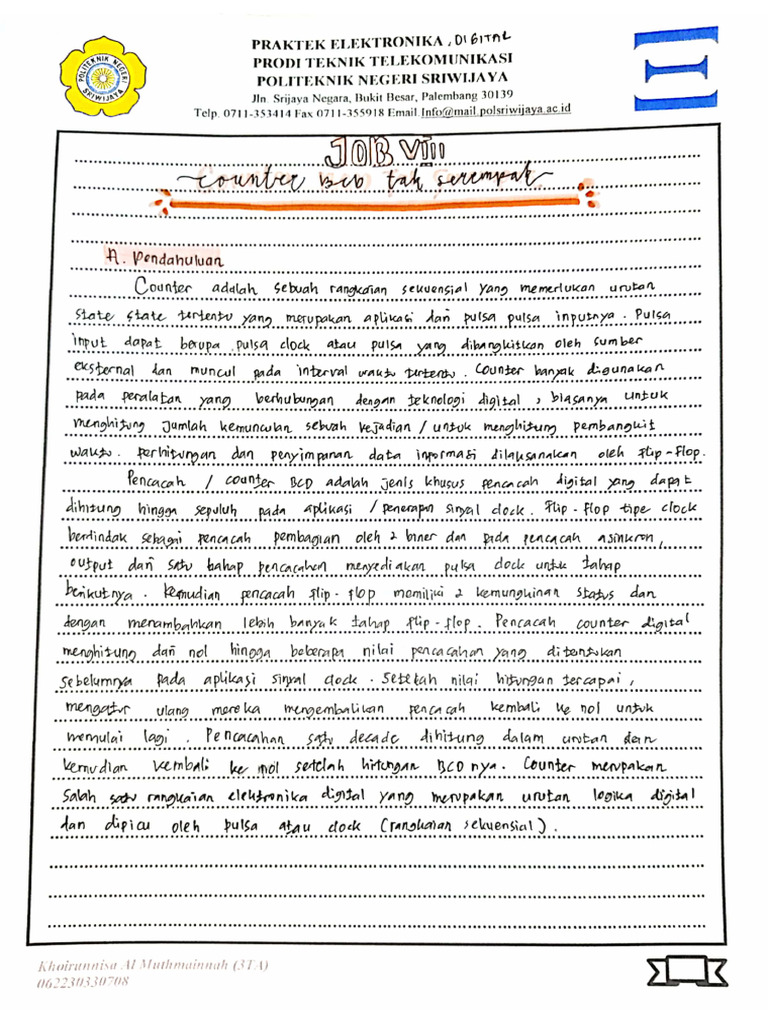 PRAKTEK ELEKTRONIKA, DIGITAL
PRODI TEKNIK TELEKOMUNIKASI
POLITEKNIK NEGERI SRIWIJAYA
Jln. Srijaya Negara, Bukit Besar, Palembang 30139
Telp. 0711-353414 Fax 0711-355918 Email.Info@mail.polsriwijaya.ac.id
POLITEKNIK NEGERI
SRIWIJAYA
JOB VIII
Counter BCD tak serempak
A. Pendahuluan
Counter adalah sebuah rangkaian sekuensial yang memerlukan urutan
state state tertentu yang merupakan aplikasi dari pulsa pulsa inputnya. Pulsa
input dapat berupa pulsa clock atau pulsa yang dibangkitkan oleh sumber
eksternal dan muncul pada interval waktu tertentu. Counter banyak digunakan
pada peralatan yang berhubungan dengan teknologi digital, biasanya untuk
menghitung jumlah kemunculan sebuah kejadian / untuk menghitung pembangkit
waktu. Perhitungan dan penyimpanan data informasi dilaksanakan oleh flip-flop.
Pencacah / counter BCD adalah jenis khusus pencacah digital yang dapat
dihitung hingga sepuluh pada aplikasi / penerapan sinyal clock. Flip-flop tipe clock
bertindak sebagai pencacah pembagian oleh 2 biner dan pada pencacah asinkron,
output dari satu tahap pencacahan menyediakan pulsa clock untuk tahap
berikutnya. Kemudian pencacah flip-flop memiliki 2 kemungkinan status dan
dengan menambahkan lebih banyak tahap flip-flop. Pencacah counter digital
menghitung dari nol hingga beberapa nilai pencacahan yang ditentukan
sebelumnya pada aplikasi sinyal clock. Setelah nilai hitungan tercapai,
mengatur ulang mereka mengembalikan pencacah kembali ke nol untuk
memulai lagi. Pencacahan satu decade dihitung dalam urutan dan
kemudian kembali ke nol setelah hitungan BCD nya. Counter merupakan
salah satu rangkaian elektronika digital yang merupakan urutan logika digital
dan dipicu oleh pulsa atau clock (rangkaian sekuensial).
Khoirunnisa Al Muthmainnah (3TA)
062230330708